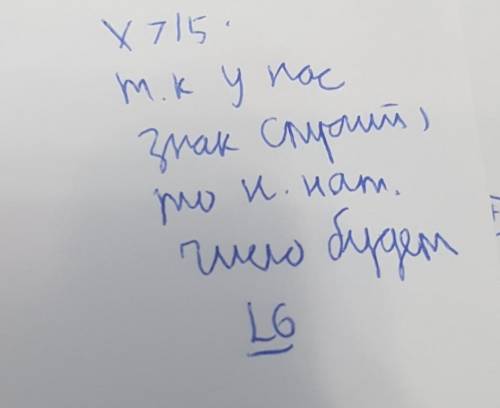 x > 15.
т.к у нас
знак строгий,
то н. нат.
число будет
16